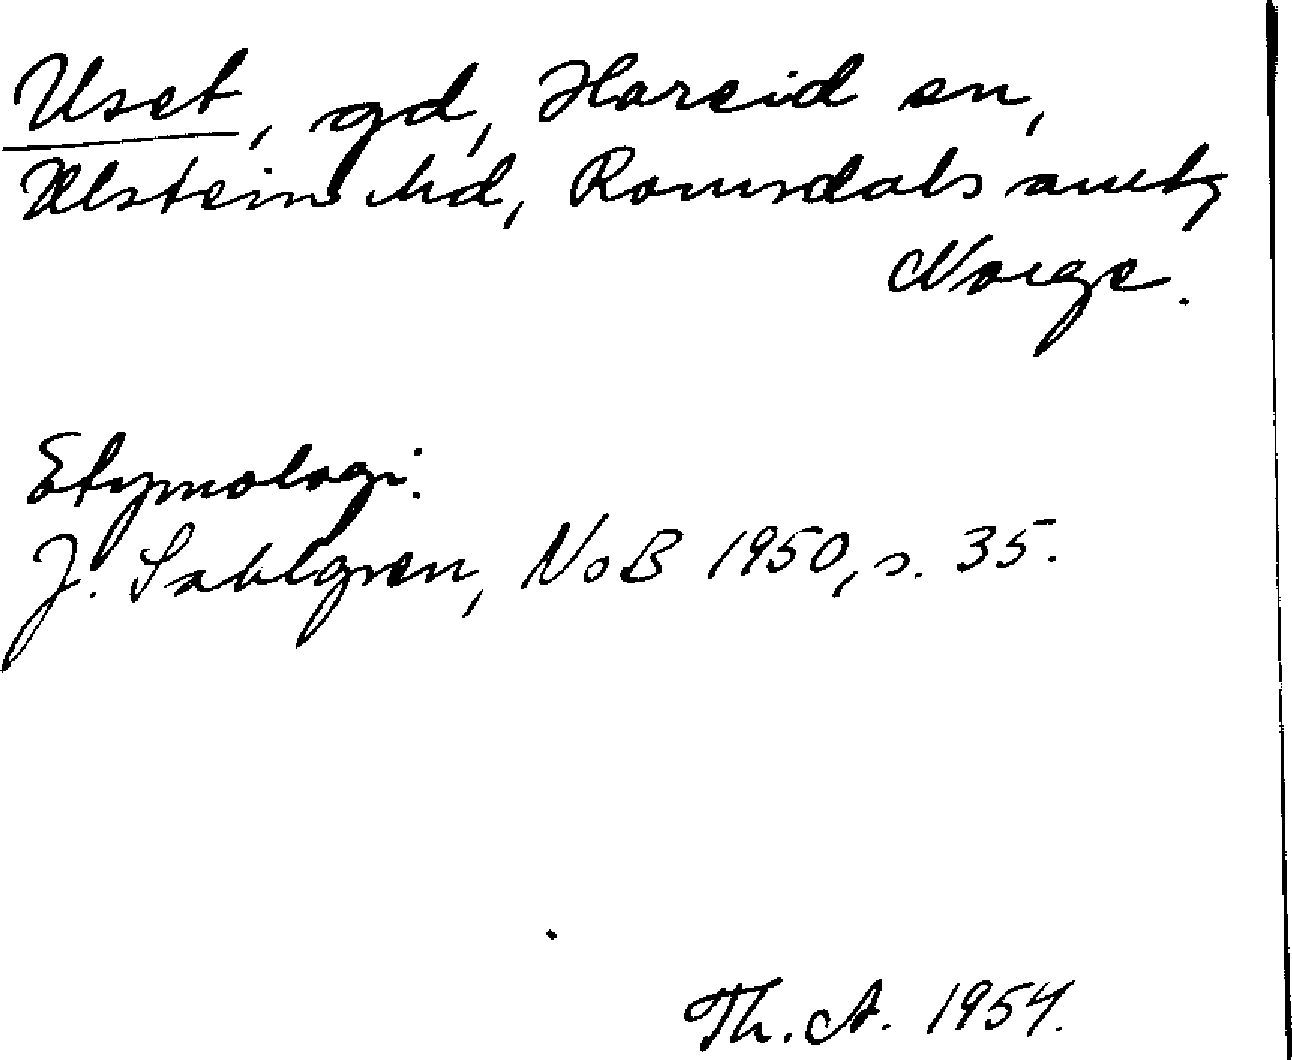 Uset, gd, Hareid sn,
Ulstein hd, Romsdals amt,
Norge.
Etymologi:
J. Sahlgren, NoB 1950, s. 35.
Th. A. 1954.